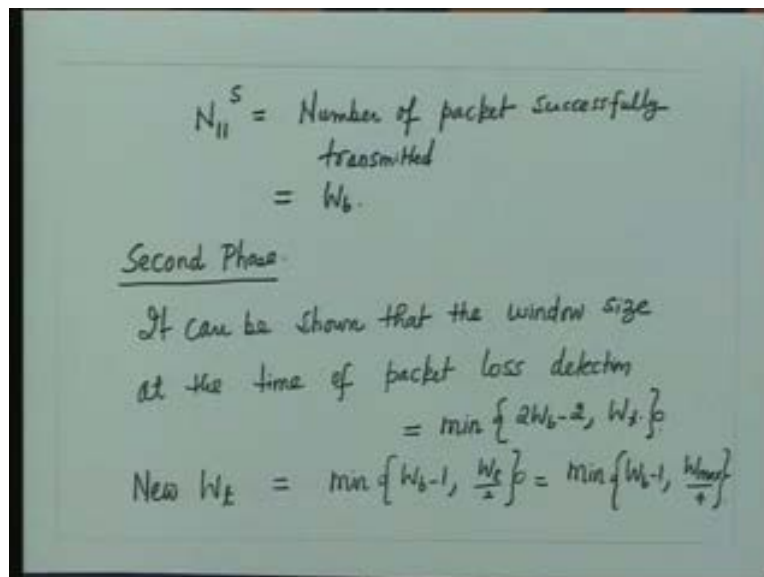 N₁₁ˢ = Number of packet successfully
transmitted
= W_b.
Second Phase.
It can be shown that the window size
at the time of packet loss detection
= min { 2W_b-2, W_t. }.
New W_t = min { W_b-1, W_t/2 } = min { W_b-1, W_max/4 }